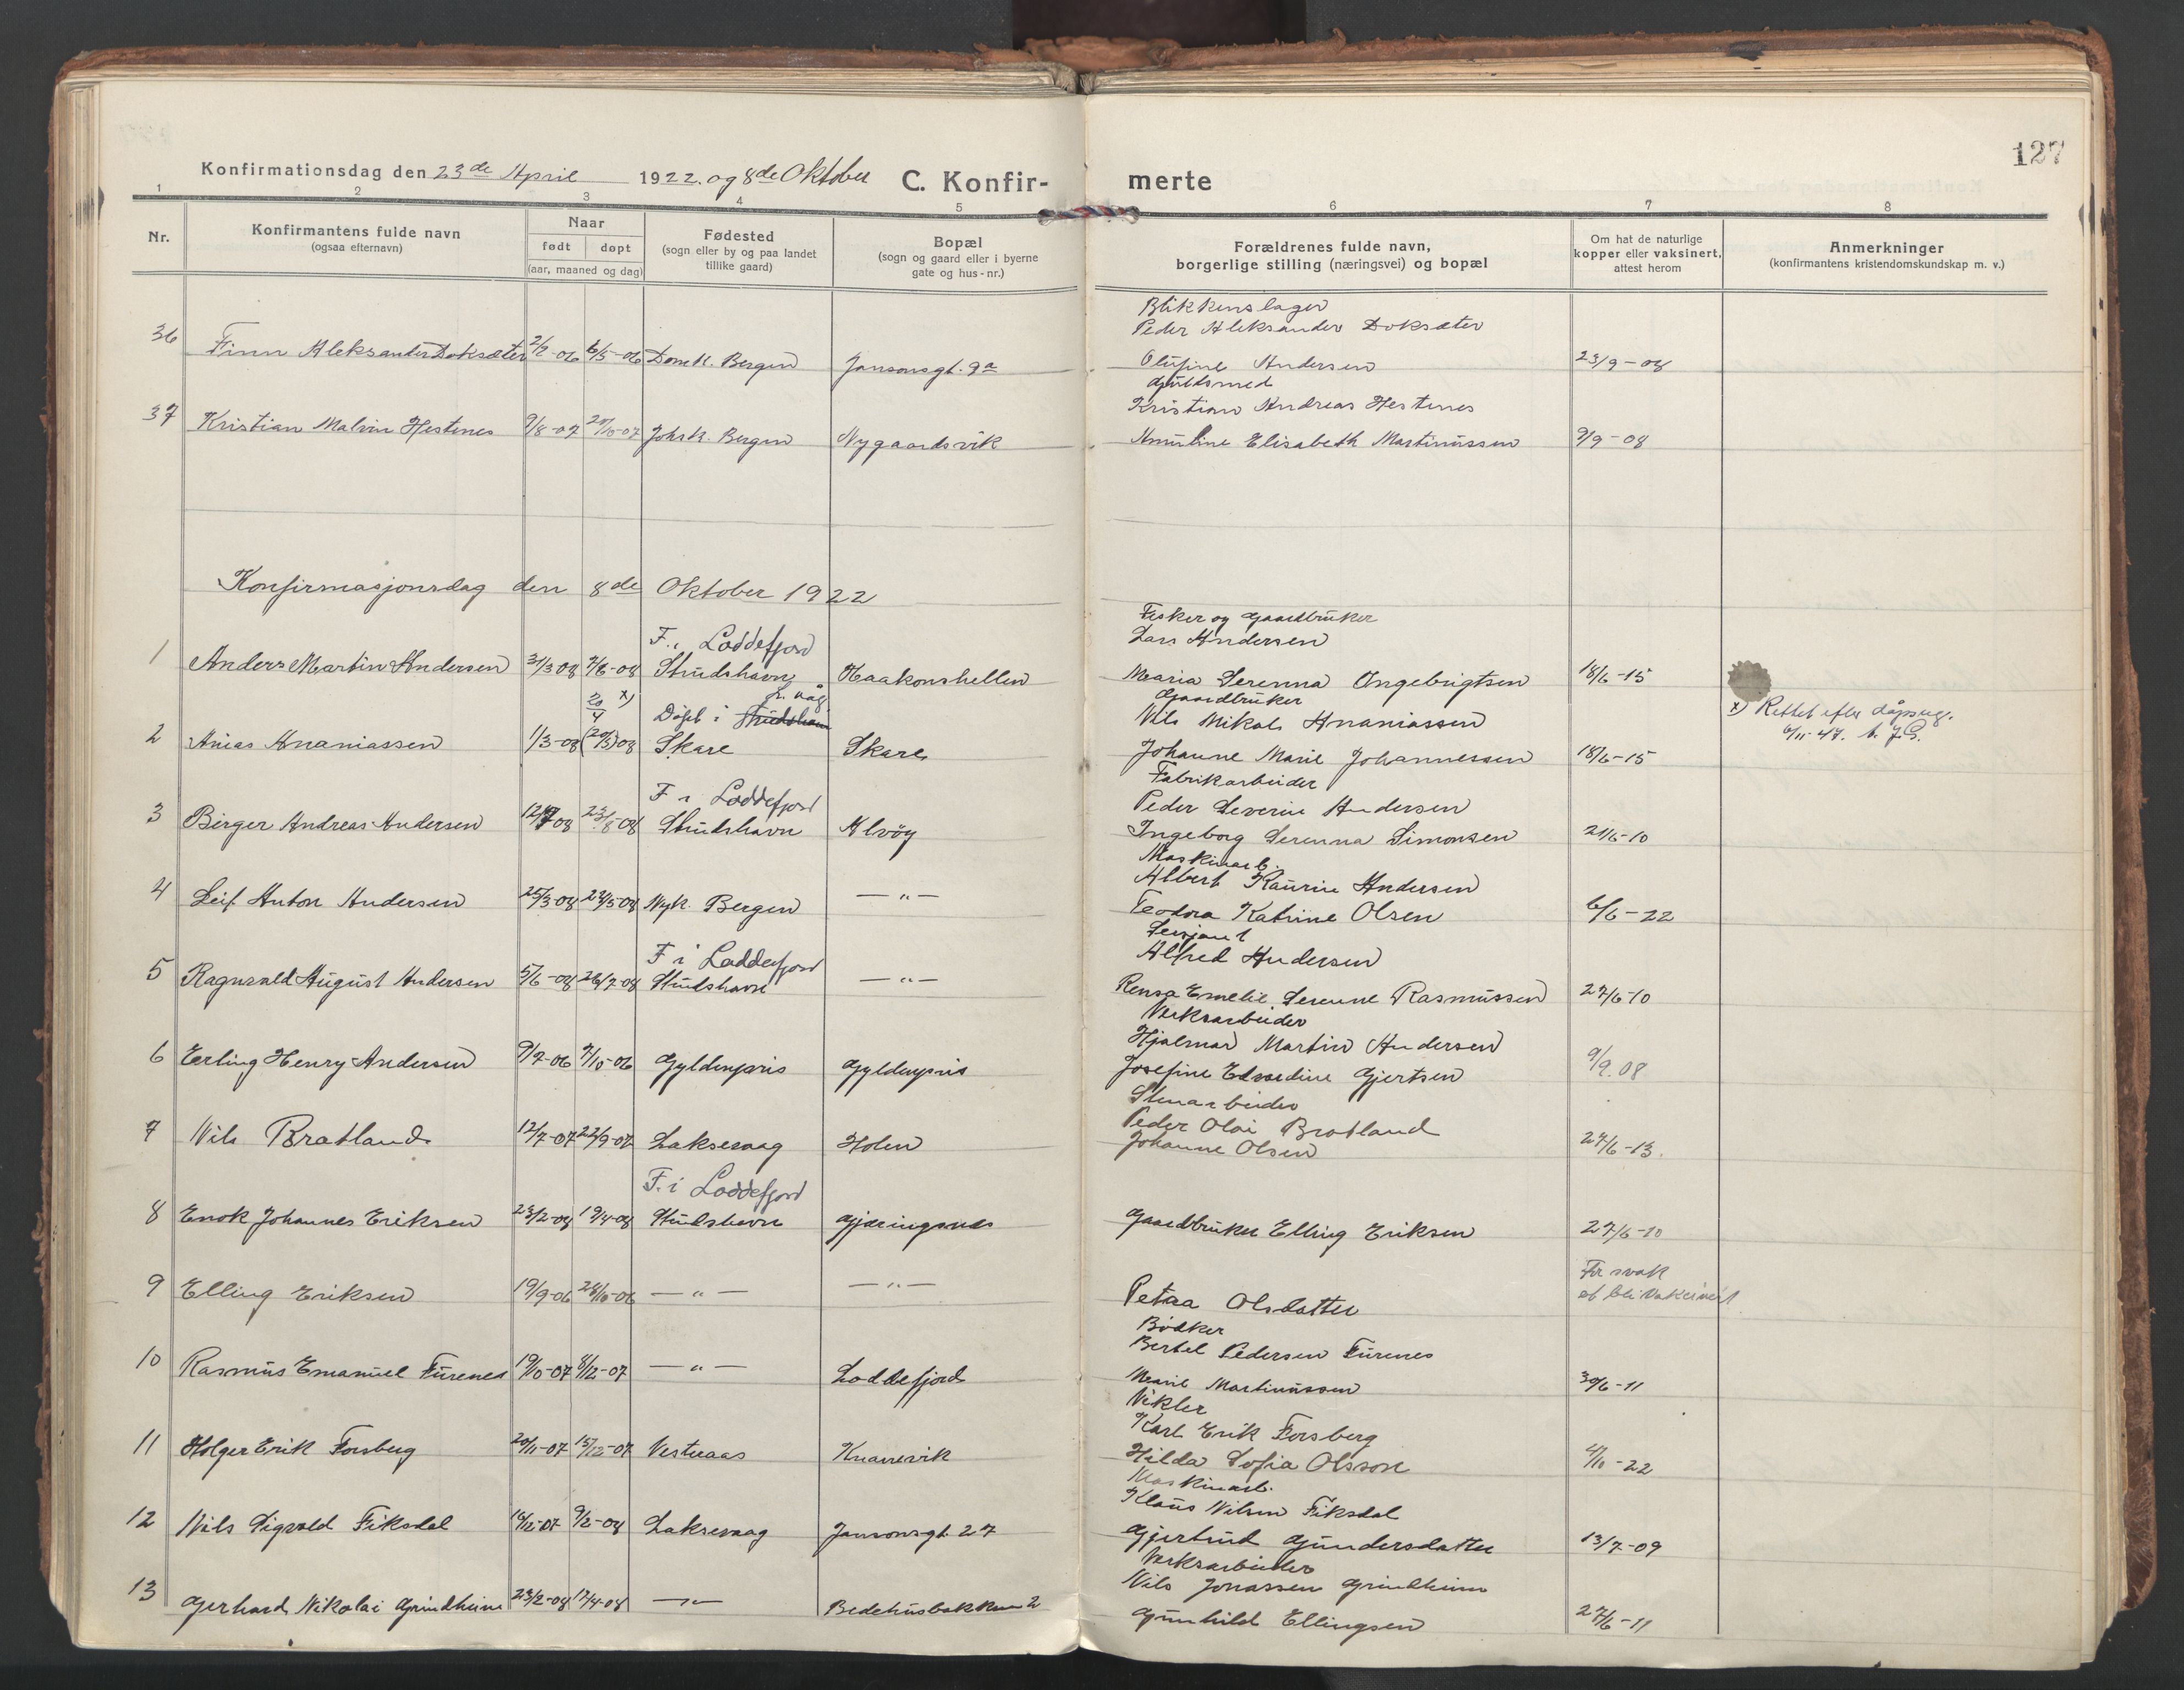 127
Konfirmationsdag den 23de April 1922. og 8de Oktober C. Konfir- merte
1 2 3 4 5 6 7 8
Nr.
Konfirmantens fulde navn
(ogsaa efternavn)
Naar
født døpt
(aar, maaned og dag)
Fødested
(sogn eller by og paa landet
tillike gaard)
Bopæl
(sogn og gaard eller i byerne
gate og hus-nr.)
Forældrenes fulde navn,
borgerlige stilling (næringsvei) og bopæl
Om hat de naturlige
kopper eller vaksinert,
attest herom
Anmerkninger
(konfirmantens kristendomskundskap m. v.)
Blikkenslager
Peder Aleksander Doksæter
36 Finn Aleksander Doksæter 2/2-06 6/5-06 Domk. Bergen Jansonsgt. 9a Olufine Andersen 23/9-08
Guldsmed
Kristian Andreas Hestenes
37 Kristian Malvin Hestenes 9/8-07 20/10-07 Johsk. Bergen Nygaardsvik Amuline Elisabeth Martinussen 9/9-08
Konfirmasjonsdag den 8de Oktober 1922
Fisker og Gaardbruker
F. i Loddefjord Lars Andersen
1 Anders Martin Andersen 31/3 08 7/6-08 Studshavn Haakonshellen Maria Serenna Ingebrigtsen 18/6-15
Gaardbruker
20/4 x) Døpt i Studshavn Nils Mikal Ananiassen x) Rettet efter dåpsreg.
2 Anias Ananiassen 1/3-08 (20/3) 08 Skare Skare Johanne Marie Johannessen 18/6-15 6/11-47.
Fabrikarbeider
F i Loddefjord Peder Severin Andersen
3 Birger Andreas Andersen 12/7 08 23/8-08 Studshavn Alvøy Ingeborg Serenna Simonsen 21/6-10
Maskinarb.
Albert Kaurin Andersen
4 Leif Anton Andersen 25/3-08 24/5-08 Nyk. Bergen —"— Teodora Katrine Olsen 6/6-22
Sersjant
F i Loddefjord Alfred Andersen
5 Ragnvald August Andersen 5/6-08 26/7-08 Studshavn —"— Rensa Emelie Serenne Rasmussen 27/6-10
Verksarbeider
Hjalmar Martin Andersen
6 Erling Henry Andersen 9/7-06 7/10-06 Gyldenpris Gyldenpris Josefine Edvardine Gjertsen 9/9.08
Stenarbeider
Peder Olai Bratland
7 Nils Bratland 12/7-07 22/9-07 Laksevaag Holen Johanne Olsen 27/6-13.
F. i Loddefjord
8 Enok Johannes Eriksen 23/2-08 19/4-08 Studshavn Gjæringsnes Gaardbruker Elling Eriksen 27/6-10
For svak
9 Elling Eriksen 19/9-06 28/10-06 —"— —"— Petraa Olsdatter at bli vaksinert
Bødker
Bertel Pedersen Furenes
10 Rasmus Emanuel Furenes 19/10-07 8/12-07 —"— Loddefjord Marie Martinussen 30/6-11
Vikler
Karl Erik Forsberg
11 Holger Erik Forsberg 20/11-07 15/12-07 Vesteraas Knarrevik Hilda Sofia Olsson 4/10-22
Maskinarb.
Klaus Nilsen Fiksdal
12 Nils Sigvald Fiksdal 16/12-07 9/2-08 Laksevaag Jansonsgt. 27 Gjertrud Gundersdatter 13/7-09
Verksarbeider
Nils Jonassen Grindheim
13 Gerhard Nikolai Grindheim 23/2-08 17/4-08 —"— Bedehusbakken 2 Gunhild Ellingsen 27/6-11